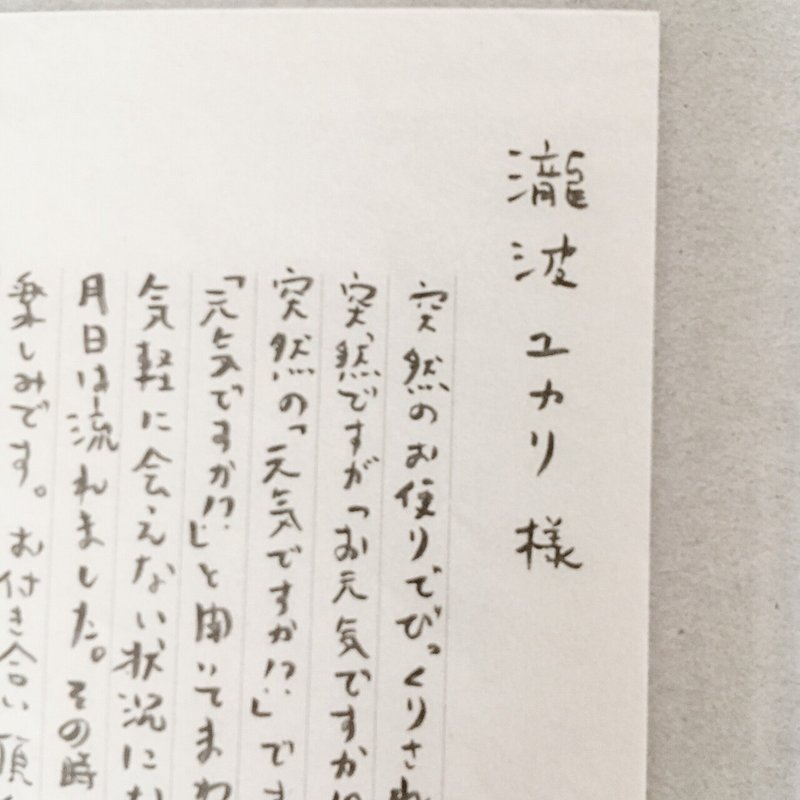 瀧波ユカリ様
突然のお便りでびっくりされ
突然ですが「お元気ですか!?
突然の「元気ですか!?」でま
「元気ですか!?」と聞いてまわ
気軽に会えない状況にな
月日は流れました。その時
楽しみです。お付き合い頂